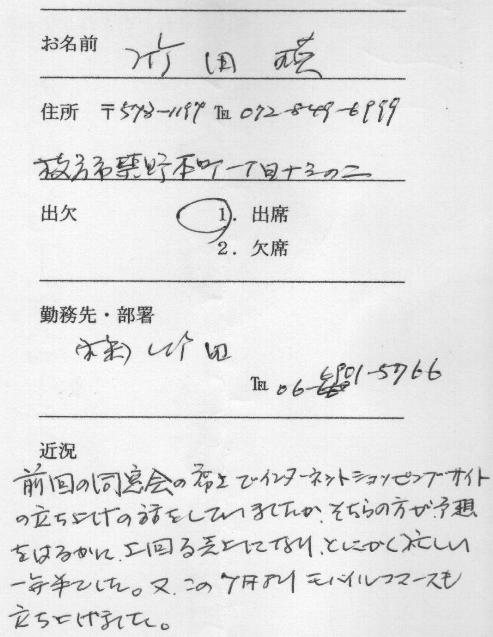 お名前 竹田
住所 〒573-1197 ℡ 072-849-6999
枚方市禁野本町一丁目十三の二
出欠 1. 出席
2. 欠席
勤務先・部署
(株)竹田
℡ 06-6901-5766
近況
前回の同窓会の席上でインターネットショッピングサイト
の立ち上げの話をしていましたが、そちらの方が予想
をはるかに上回る売上になり、とにかく忙しい
一年半でした。又、この7月より モバイルコマースも
立ち上げました。